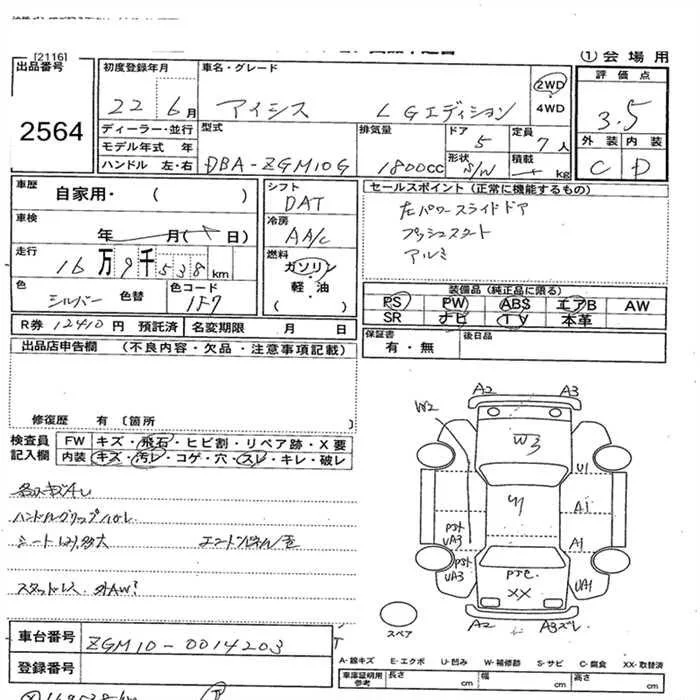 [2116]
① 会 場 用
出品番号
2564
初度登録年月
22 6月
車名・グレード
アイシス LGエディション
2WD
4WD
評 価 点
3.5
外 装 内 装
C D
ディーラー・並行
モデル年式 年
ハンドル 左・右
型式
DBA-ZGM10G
排気量
1800cc
ドア
5
定員
7人
形状
S/W
積載
kg
車歴
自家用・ ( )
車検
年 月( 日)
走行
16万9千538km
色
シルバー 色替
色コード
1F7
R券 12410円 預託済
名変期限 月 日
シフト
DAT
冷房
AA/C
燃料
ガソリン
・
軽・油
( )
セールスポイント (正常に機能するもの)
左パワースライドドア
プッシュスタート
アルミ
装備品 (純正品に限る)
PS PW ABS エアB AW
SR ナビ TV 本革
保証書
有・無
後日品
出品店申告欄 (不良内容・欠品・注意事項記載)
修復歴 有 〔箇所 〕
検査員
記入欄
FW キズ・飛石・ヒビ割・リペア跡・X要
内装 キズ・汚レ・コゲ・穴・スレ・キレ・破レ
スタッドレス
車台番号
ZGM10-0014203
登録番号
A2 A3
W2
W3
U1
A1
UA3
A1
UA3
UA1
XX
A2 A3ズレ
スペア
A-線キズ E-エクボ U-凹み W-補修跡 S-サビ C-腐食 XX-取替済
車庫証明用
参考
長さ cm
幅 cm
高さ cm